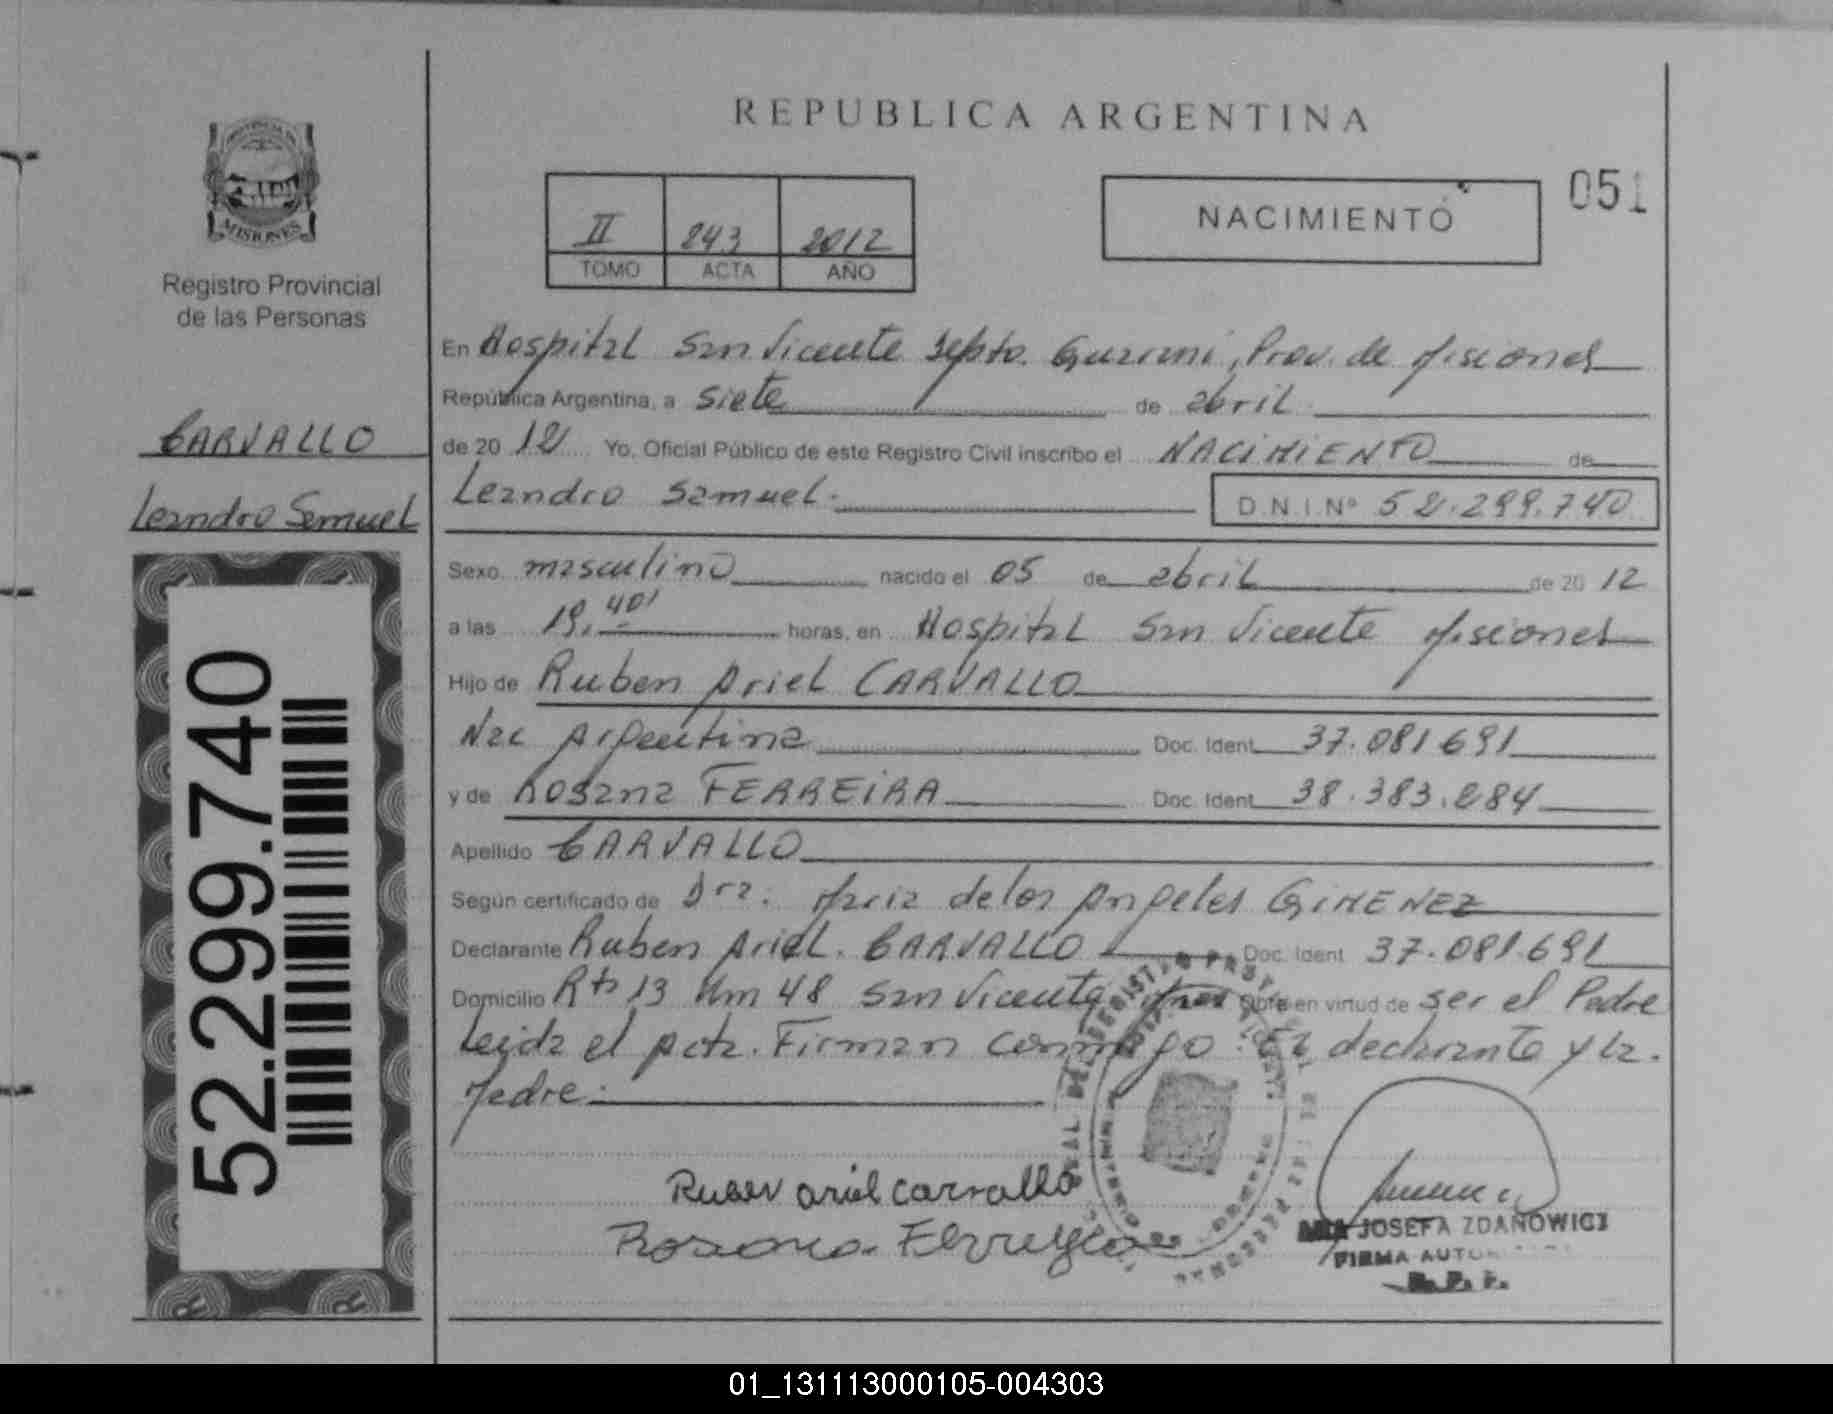 REPUBLICA ARGENTINA
MISIONES
Registro Provincial
de las Personas
II 243 2012
TOMO ACTA AÑO
NACIMIENTO
051
CARVALLO
Leandro Samuel
52.299.740
En Hospital San Vicente Depto. Guarani, Prov. de Misiones
República Argentina, a siete de abril
de 2012 Yo, Oficial Público de este Registro Civil inscribo el NACIMIENTO de
Leandro Samuel. D.N.I.Nº 52.299.740
Sexo masculino nacido el 05 de abril de 2012
a las 19,40' horas, en Hospital San Vicente Misiones
Hijo de Ruben Ariel CARVALLO
Nac Argentina Doc. Ident 37.081691
y de Rosana FERREIRA Doc. Ident 38.383.284
Apellido CARVALLO
Según certificado de Dra. Maria de los Angeles GIMENEZ
Declarante Ruben Ariel. CARVALLO Doc. Ident 37.081.691
Domicilio Rta 13 Km 48 San Vicente Mnes Obra en virtud de ser el Padre
Leida el Acta. Firman conmigo. El declarante y la.
Madre.
Ruben ariel carvallo
Rosana
JOSEFA ZDANOWICZ
FIRMA
01_131113000105-004303